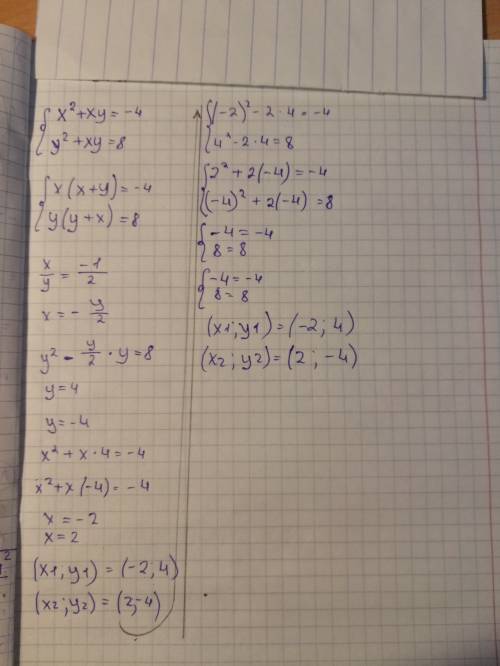 { x² + xy = -4
{ y² + xy = 8
{ x (x + y) = -4
{ y (y + x) = 8
x/y = -1/2
x = - y/2
y² - y/2 · y = 8
y = 4
y = -4
x² + x · 4 = -4
x² + x (-4) = -4
x = -2
x = 2
(x1, y1) = (-2, 4)
(x2; y2) = (2; -4)
{ (-2)² - 2 · 4 = -4
{ 4² - 2 · 4 = 8
{ 2² + 2(-4) = -4
{ (-4)² + 2(-4) = 8
{ -4 = -4
{ 8 = 8
{ -4 = -4
{ 8 = 8
(x1; y1) = (-2; 4)
(x2; y2) = (2; -4)